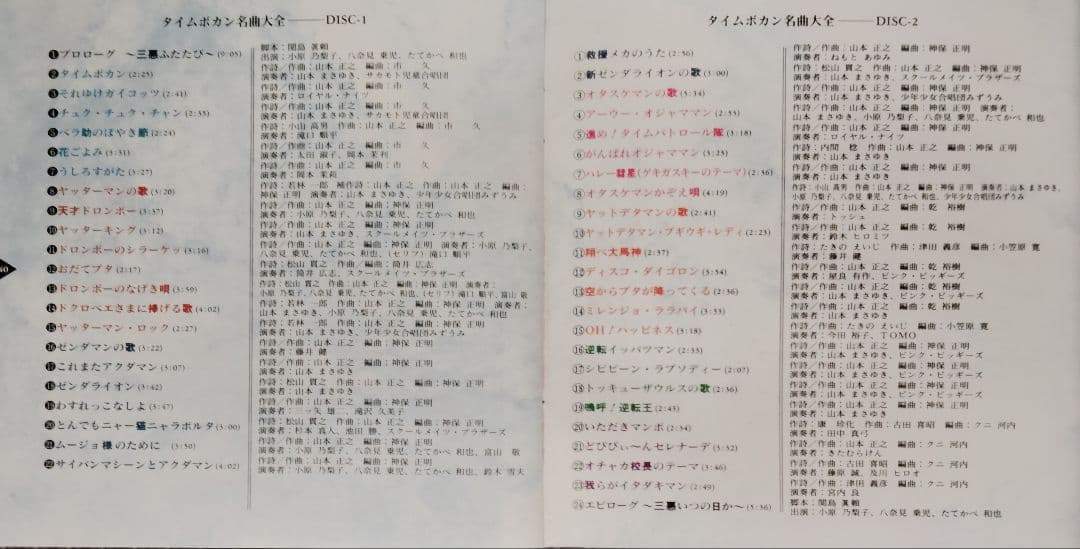 タイムボカン名曲大全───DISC-1
❶プロローグ ～三悪ふたたび～(9:05)
❷タイムボカン(2:25)
❸それゆけガイコッツ(2:41)
❹チュク・チュク・チャン(2:33)
❺ペラ助のぼやき節(2:24)
❻花ごよみ(3:31)
❼うしろすがた(3:27)
❽ヤッターマンの歌(3:20)
❾天才ドロンボー(3:37)
❿ヤッターキング(3:12)
⓫ドロンボーのシラーケッ(3:16)
⓬おだてブタ(2:17)
⓭ドロンボーのなげき唄(3:59)
⓮ドクロベエさまに捧げる歌(4:02)
⓯ヤッターマン・ロック(2:27)
⓰ゼンダマンの歌(3:22)
⓱これまたアクダマン(3:07)
⓲ゼンダライオン(3:42)
⓳わすれっこなしよ(3:47)
⓴とんでもニャー猫ニャラボルタ(3:00)
㉑ムージョ様のために (3:50)
㉒サイバンマシーンとアクダマン(4:02)
脚本：関島 眞頼
出演：小原 乃梨子、八奈見 乗児、たてかべ 和也
作詩／作曲：山本 正之 編曲：市 久
演奏者：山本 まさゆき、サカモト児童合唱団
作詩／作曲：山本 正之 編曲：市 久
演奏者：ロイヤル・ナイツ
作詩／作曲：山本 正之 編曲：市 久
演奏者：山本 まさゆき、サカモト児童合唱団
作詩：小山 高男 作曲：山本 正之 編曲：市 久
演奏者：滝口 順平
作詩／作曲：山本 正之 編曲：市 久
演奏者：太田 淑子、岡本 茉利
作詩／作曲：山本 正之 編曲：市 久
演奏者：岡本 茉莉
作詩：若林 一郎 補作詩：山本 正之 作曲：山本 正之 編曲：
神保 正明 演奏者：山本 まさゆき、少年少女合唱団みずうみ
作詩／作曲：山本 正之 編曲：神保 正明
演奏者：小原 乃梨子、八奈見 乗児、たてかべ 和也
作詩／作曲：山本 正之 編曲：神保 正明
演奏者：山本 まさゆき、スクールメイツ・ブラザーズ
作詩／作曲：山本 正之 編曲：神保 正明 演奏者：小原 乃梨子、
八奈見 乗児、たてかべ 和也、(セリフ) 滝口 順平
作詩：松山 貫之 作曲：山本 正之 編曲：筒井 広志
演奏者：筒井 広志、スクールメイツ・ブラザーズ
作詩／作曲：山本 正之 編曲：神保 正明 演奏者：
小原 乃梨子、八奈見 乗児、たてかべ 和也、(セリフ) 滝口 順平、富山 敬
作詩：若林 一郎 作曲：山本 正之 編曲：神保 正明 演奏者：山本
まさゆき、小原 乃梨子、八奈見 乗児、たてかべ 和也
作詩：若林 一郎 作曲：山本 正之 編曲：神保 正明
演奏者：山本 まさゆき、少年少女合唱団みずうみ
作詩／作曲：山本 正之 編曲：神保 正明
演奏者：藤井 健
作詩／作曲：山本 正之 編曲：神保 正明
演奏者：山本 まさゆき
作詩：松山 貫之 作曲：山本 正之 編曲：神保 正明
演奏者：山本 まさゆき
作詩／作曲：山本 正之 編曲：神保 正明
演奏者：三ッ矢 雄二、滝沢 久美子
作詩：松山 貫之 作曲：山本 正之 編曲：神保 正明
演奏者：杉本 真人、池田 勝、スクールメイツ・ブラザーズ
作詩／作曲：山本 正之 編曲：神保 正明
演奏者：小原 乃梨子、八奈見 乗児、富山 敬
作詩／作曲：山本 正之 編曲：神保 正明
演奏者：小原 乃梨子、八奈見 乗児、たてかべ 和也、鈴木 雪夫
40
タイムボカン名曲大全───DISC-2
①救援メカのうた(2:56)
②新ゼンダライオンの歌(3:00)
③オタスケマンの歌(3:34)
④アーウー・オジャママン(3:23)
⑤進め！タイムパトロール隊(3:18)
⑥がんばれオジャママン(3:23)
⑦ハレー彗星(ゲキガスキーのテーマ)(3:56)
⑧オタスケマンかぞえ唄(4:19)
⑨ヤットデタマンの歌(2:41)
⑩ヤットデタマン・ブギウギ・レディ(3:23)
⑪翔べ大馬神(2:37)
⑫ディスコ・ダイゴロン(3:54)
⑬空からブタが降ってくる(2:36)
⑭ミレンジョ・ララバイ(3:33)
⑮OH！ハッピネス(3:18)
⑯逆転イッパツマン(2:33)
⑰シビビーン・ラプソディー(2:07)
⑱トッキューザウルスの歌(2:36)
⑲嗚呼！逆転王(2:43)
⑳いただきマンボ(2:34)
㉑どびびぃ～んセレナーデ(3:32)
㉒オチャカ校長のテーマ(3:46)
㉓我らがイタダキマン(2:49)
㉔エピローグ ～三悪いつの日か～(5:36)
作詩／作曲：山本 正之 編曲：神保 正明
演奏者：ねもと あゆみ
作詩：松山 貫之 作曲：山本 正之 編曲：神保 正明
演奏者：山本 まさゆき、スクールメイツ・ブラザーズ
作詩／作曲：山本 正之 編曲：神保 正明
演奏者：山本 まさゆき、少年少女合唱団みずうみ
作詩／作曲：山本 正之 編曲：神保 正明 演奏者：
山本 まさゆき、小原 乃梨子、八奈見 乗児、たてかべ 和也
作詩／作曲：山本 正之 編曲：神保 正明
演奏者：ロイヤル・ナイツ
作詩：内間 稔 作曲：山本 正之 編曲：神保 正明
演奏者：山本 まさゆき
作詩／作曲：山本 正之 編曲：神保 正明
演奏者：山本 まさゆき
作詩：小山 高男 作曲：山本 正之 編曲：神保 正明 演奏者：山本 まさゆき、
小原 乃梨子、八奈見 乗児、たてかべ 和也、少年少女合唱団みずうみ
作詩／作曲：山本 正之 編曲：乾 裕樹
演奏者：トッシュ
作詩／作曲：山本 正之 編曲：乾 裕樹
演奏者：鈴木 ヒロミツ
作詩：たきの えいじ 作曲：津田 義彦 編曲：小笠原 寛
演奏者：藤井 健
作詩／作曲：山本 正之 編曲：乾 裕樹
演奏者：屋良 有作、ピンク・ピッギーズ
作詩／作曲：山本 正之 編曲：乾 裕樹
演奏者：山本 まさゆき、ピンク・ピッギーズ
作詩／作曲：山本 正之 編曲：乾 裕樹
演奏者：山本 まさゆき
作詩／作曲：たきの えいじ 編曲：小笠原 寛
演奏者：今田 裕子、TOMO
作詩／作曲：山本 正之 編曲：神保 正明
演奏者：山本 まさゆき、ピンク・ピッギーズ
作詩／作曲：山本 正之 編曲：神保 正明
演奏者：山本 まさゆき、ピンク・ピッギーズ
作詩／作曲：山本 正之 編曲：神保 正明
演奏者：山本 まさゆき、ピンク・ピッギーズ
作詩／作曲：山本 正之 編曲：神保 正明
演奏者：山本 まさゆき
作詩：康 珍化 作曲：古田 喜昭 編曲：クニ 河内
演奏者：田中 真弓
作詩／作曲：山本 正之 編曲：クニ 河内
演奏者：きたむらけん
作詩／作曲：古田 喜昭 編曲：クニ 河内
演奏者：藤原 誠、及川 ヒロオ
作詩／作曲：津田 義彦 編曲：クニ 河内
演奏者：宮内 良
脚本：関島 眞頼
出演：小原 乃梨子、八奈見 乗児、たてかべ 和也